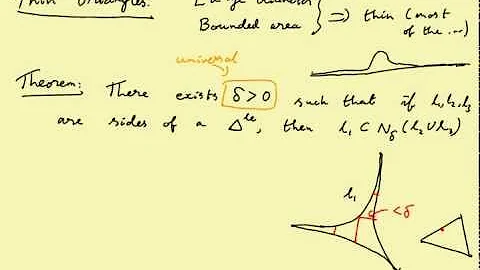 Thin triangles:
Large diameter
Bounded area } ⇒ thin (most of the ...)
universal
Theorem: There exists δ>0 such that if l₁,l₂,l₃
are sides of a Δˡᵉ, then l₁ ⊂ N_δ(l₂∪l₃)
l₁
<δ